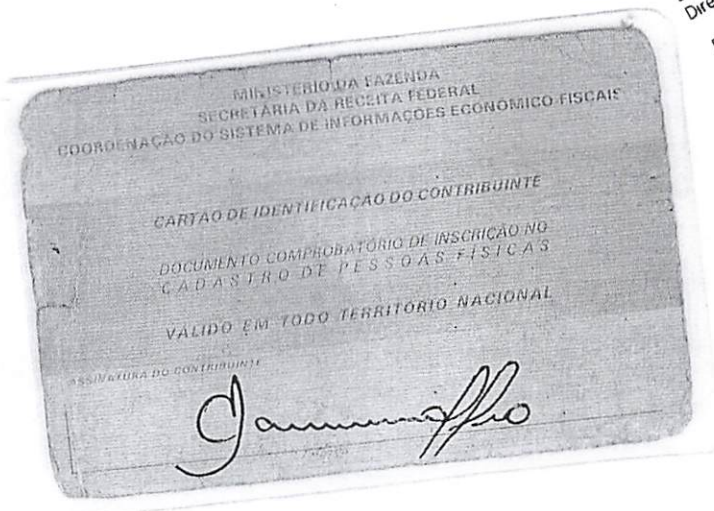 Dire
MINISTÉRIO DA FAZENDA
SECRETARIA DA RECEITA FEDERAL
COORDENAÇÃO DO SISTEMA DE INFORMAÇÕES ECONÔMICO-FISCAIS
CARTÃO DE IDENTIFICAÇÃO DO CONTRIBUINTE
DOCUMENTO COMPROBATÓRIO DE INSCRIÇÃO NO
CADASTRO DE PESSOAS FÍSICAS
VÁLIDO EM TODO TERRITÓRIO NACIONAL
ASSINATURA DO CONTRIBUINTE